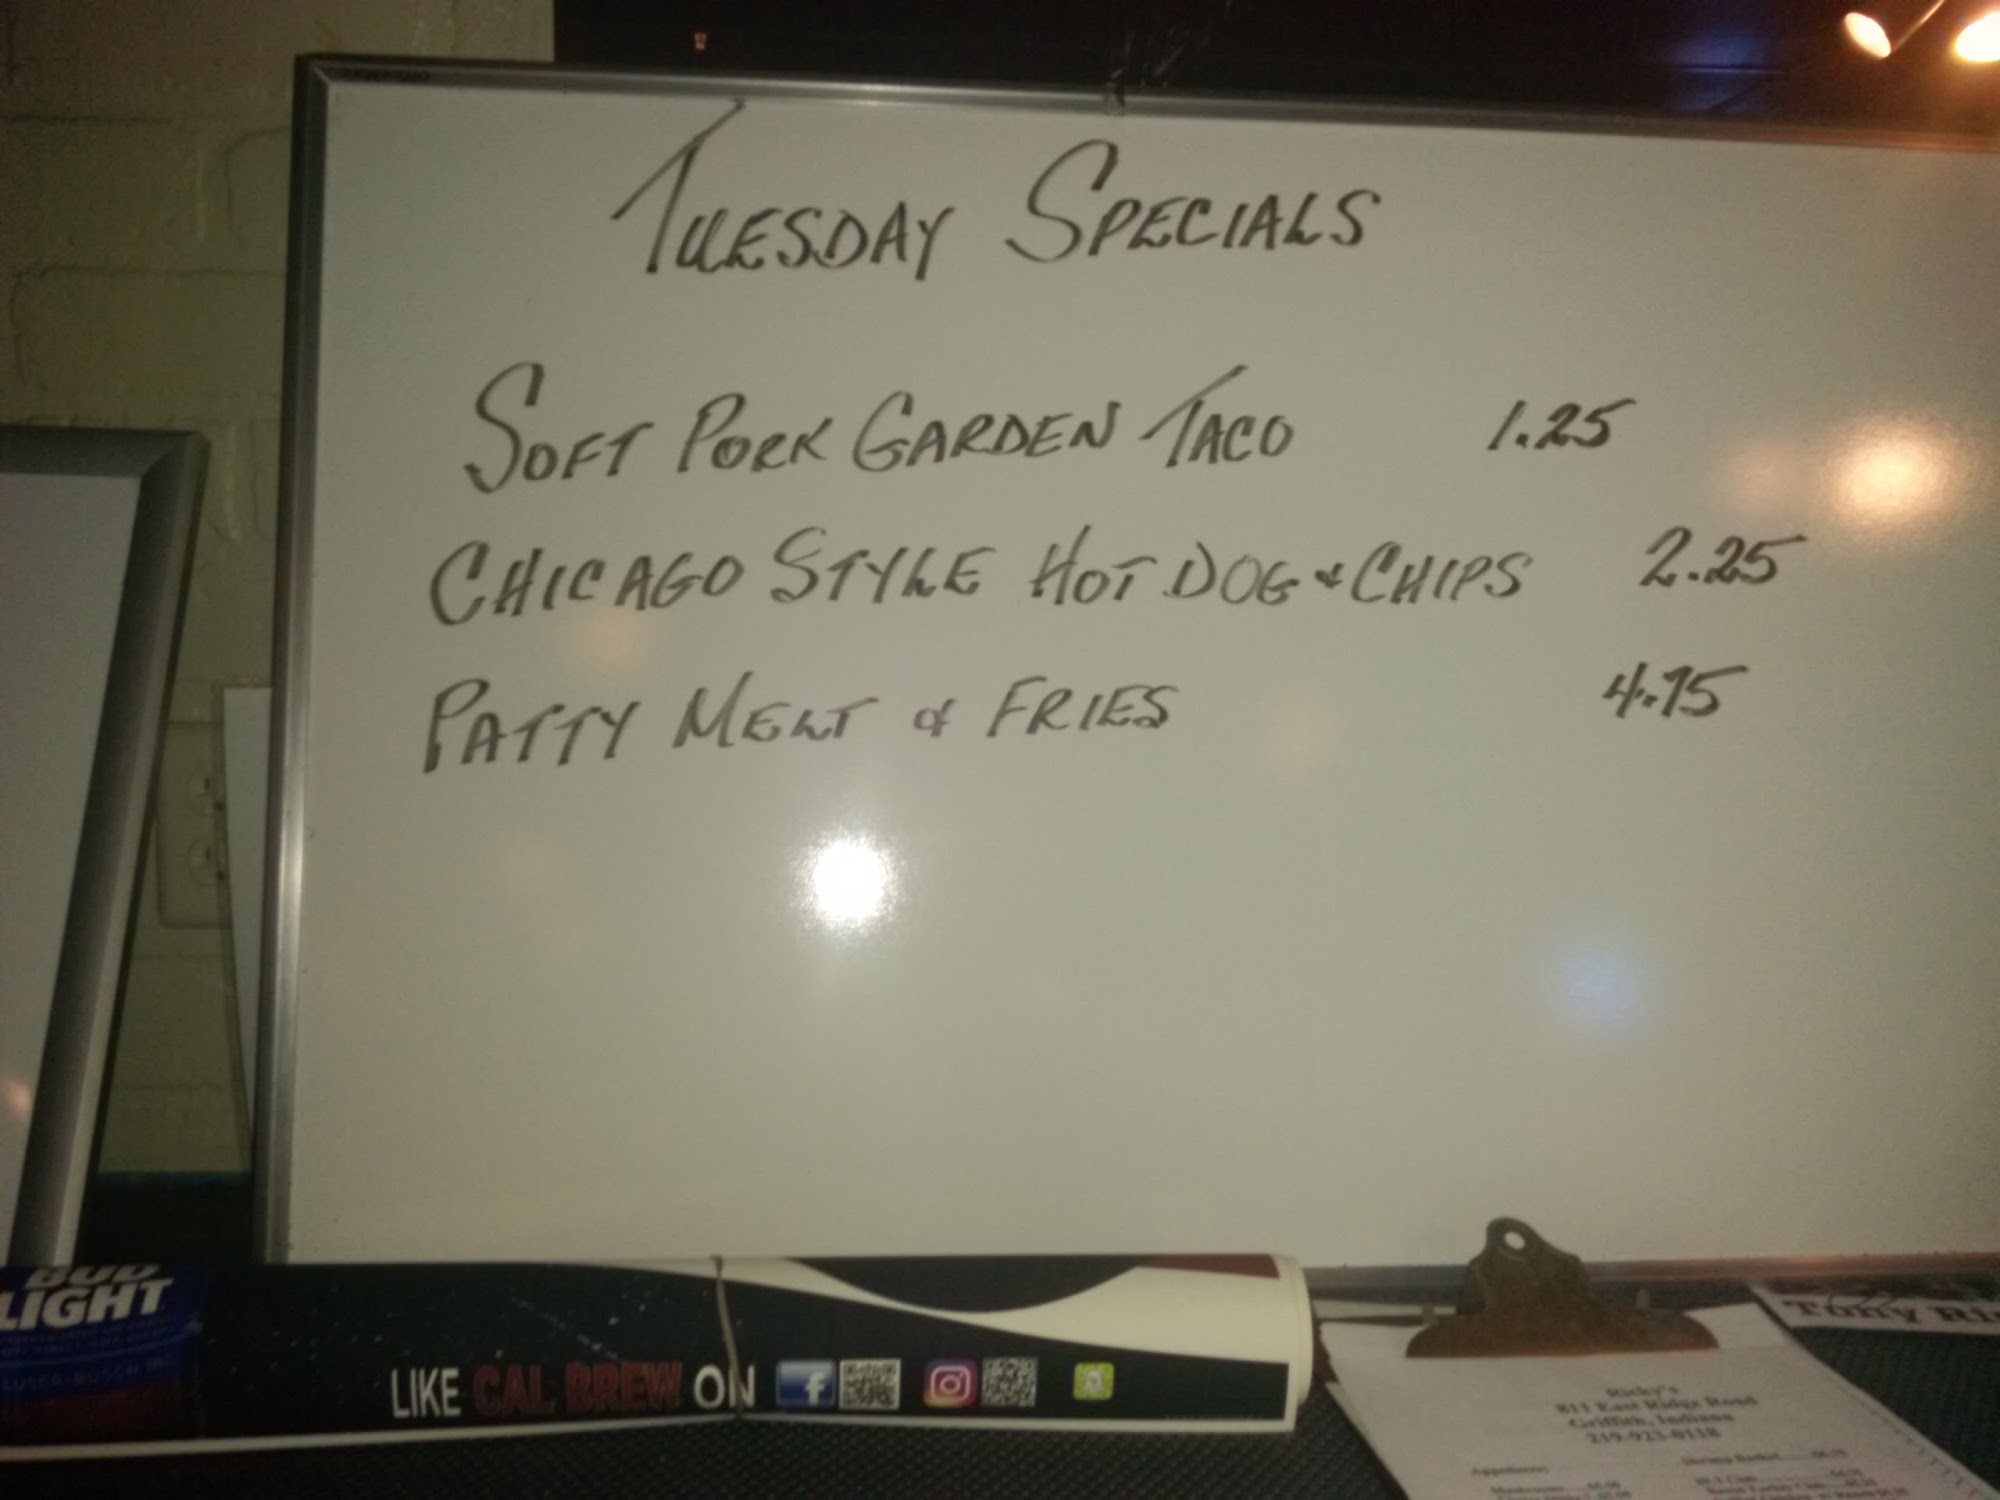 TUESDAY SPECIALS
SOFT PORK GARDEN TACO 1.25
CHICAGO STYLE HOT DOG & CHIPS 2.25
PATTY MELT & FRIES 4.75
BUD
LIGHT
LIKE CAL BREW ON
Tony
Ricky's
811 East Ridge Road
Griffith, Indiana
219-923-0118
Appetizers
Shrimp Basket
Mushrooms